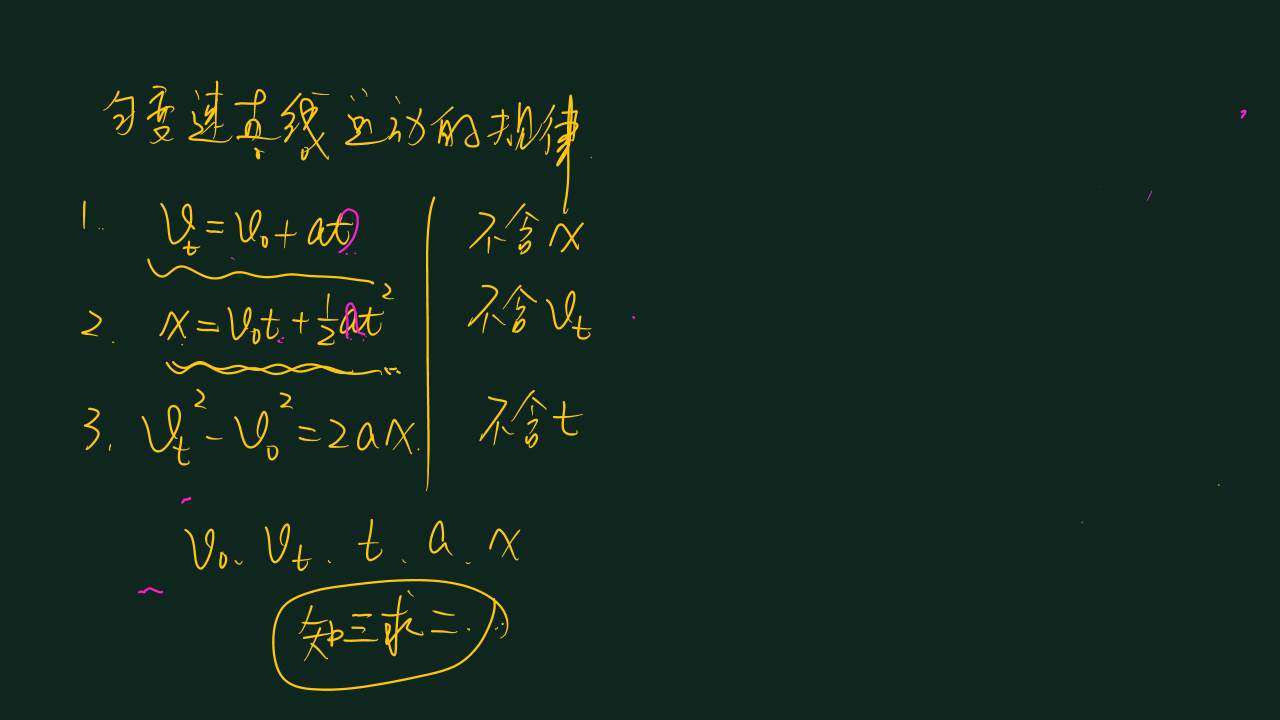 匀变速直线运动的规律
1. v_t = v_0 + at 不含 x
2. x = v_0t + 1/2 at² 不含 v_t
3. v_t² - v_0² = 2ax 不含 t
v_0、v_t、t、a、x
知三求二